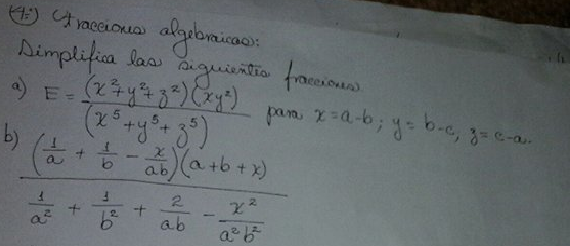 (4:) Fracciones algebraicas:
Simplifica las siguientes fracciones
a) E = (x²+y²+z²)(xy²) / (x⁵+y⁵+z⁵) para x=a-b; y=b-c, z=c-a.
b) (1/a + 1/b - x/ab)(a+b+x) / 1/a² + 1/b² + 2/ab - x²/a²b²